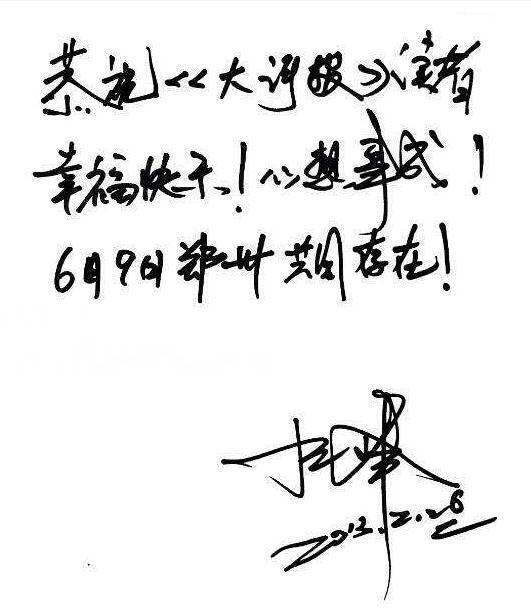 恭祝<<大河报>>读者
幸福快乐!心想事成!
6月9日郑州共同存在!
2013.2.26